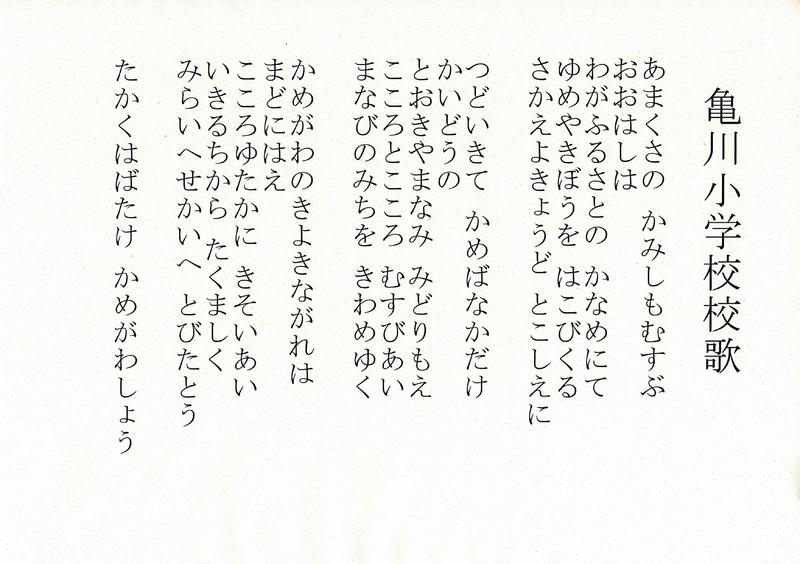 亀川小学校校歌
あまくさの　かみしもむすぶ
おおはしは
わがふるさとの　かなめにて
ゆめやきぼうを　はこびくる
さかえよきょうど　とこしえに
つどいきて　かめばなかだけ
かいどうの
とおきやまなみ　みどりもえ
こころとこころ　むすびあい
まなびのみちを　きわめゆく
かめがわのきよきながれは
まどにはえ
こころゆたかに　きそいあい
いきるちから　たくましく
みらいへせかいへ　とびたとう
たかくはばたけ　かめがわしょう